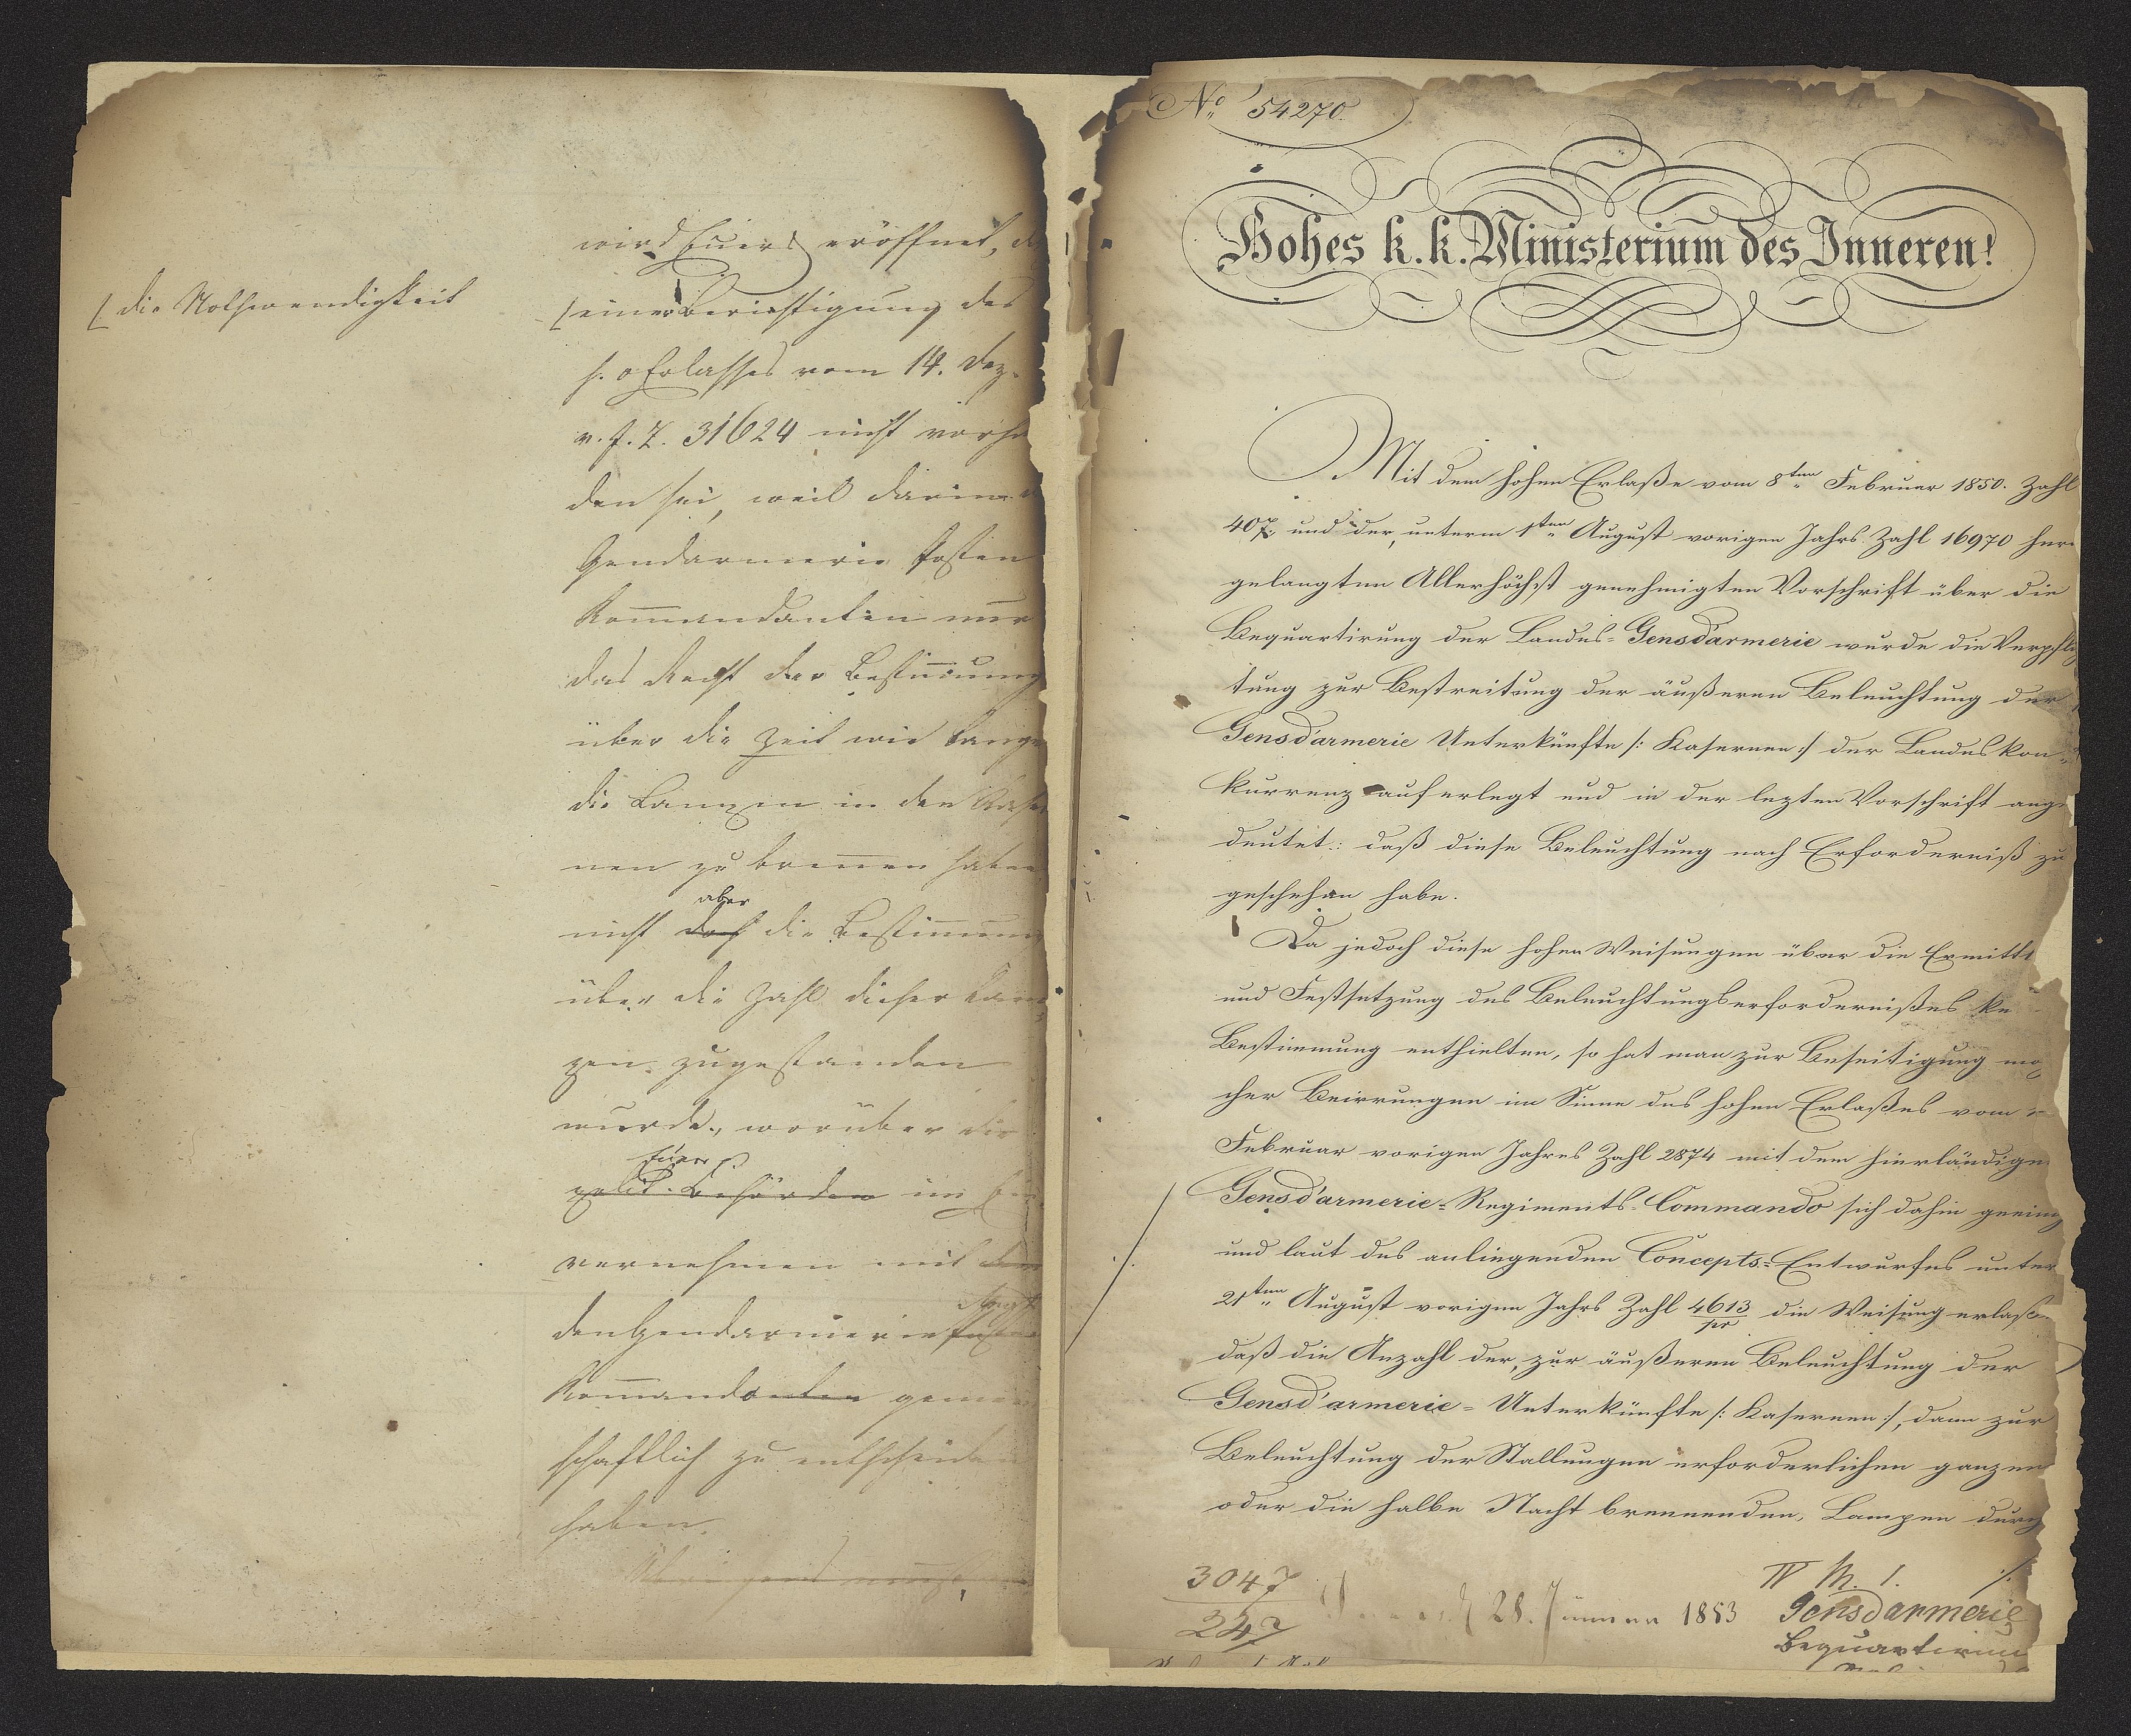 wird Euer eröffnet, d
/ die Nothwendigkeit
/ einer Berichtigung des
h. o. Erlasses vom 14. Dez.
v. J. Z. 31624 nicht vorha
den sei, weil darin
Gendarmerie Posten
Kommandanten nur
das Recht der Bestimmung
über die Zeit wie lange
die Lampen in den Kaser
nen zu brennen haben
aber
nicht doch die Bestimmung
über die Zahl dieser Lam
pen zugestanden
wurde, worüber die
Euer
polit. Behörden im Ein
vernehmen mit dem
den Gendarmerie Posten
Kommandanten gemein
schaftlich zu entscheiden
haben.
Übrigens
No 54270.
Hohes k. k. Ministerium des Inneren!
Mit dem hohen Erlaße vom 8ten Februar 1850. Zahl
407. und der, unterm 1ten August vorigen Jahrs Zahl 16970 her
gelangten Allerhöchst genehmigten Vorschrift über die
Bequartirung der Landes-Gensd'armerie wurde die Verpflich
tung zur Bestreitung der äußeren Beleuchtung der
Gensd'armerie Unterkünfte /: Kasernen :/ der Landeskon-
kurrenz auferlegt und in der lezten Vorschrift ange
deutet: daß diese Beleuchtung nach Erforderniß zu
geschehen habe.
Da jedoch diese hohen Weisungen über die Ermittl
und Festsetzung des Beleuchtungserfordernißes ke
Bestimmung enthielten, so hat man zur Beseitigung man
cher Beirrungen im Sinne des hohen Erlaßes vom
Februar vorigen Jahres Zahl 2874 mit dem hierländigen
Gensd'armerie-Regiments-Commando sich dahin geeinig
und laut des anliegenden Concepts-Entwurfes unter
21ten August vorigen Jahrs Zahl 4613/pr die Weisung erlaße
daß die Anzahl der, zur äußeren Beleuchtung der
Gensd'armerie-Unterkünfte /: Kasernen :/, dann zur
Beleuchtung der Stallungen erforderlichen ganzen
oder die halbe Nacht brennenden, Lampen durch
3047
247
28. Jänner 1853
IV M. 1.
Gensdarmerie
Bequartirung